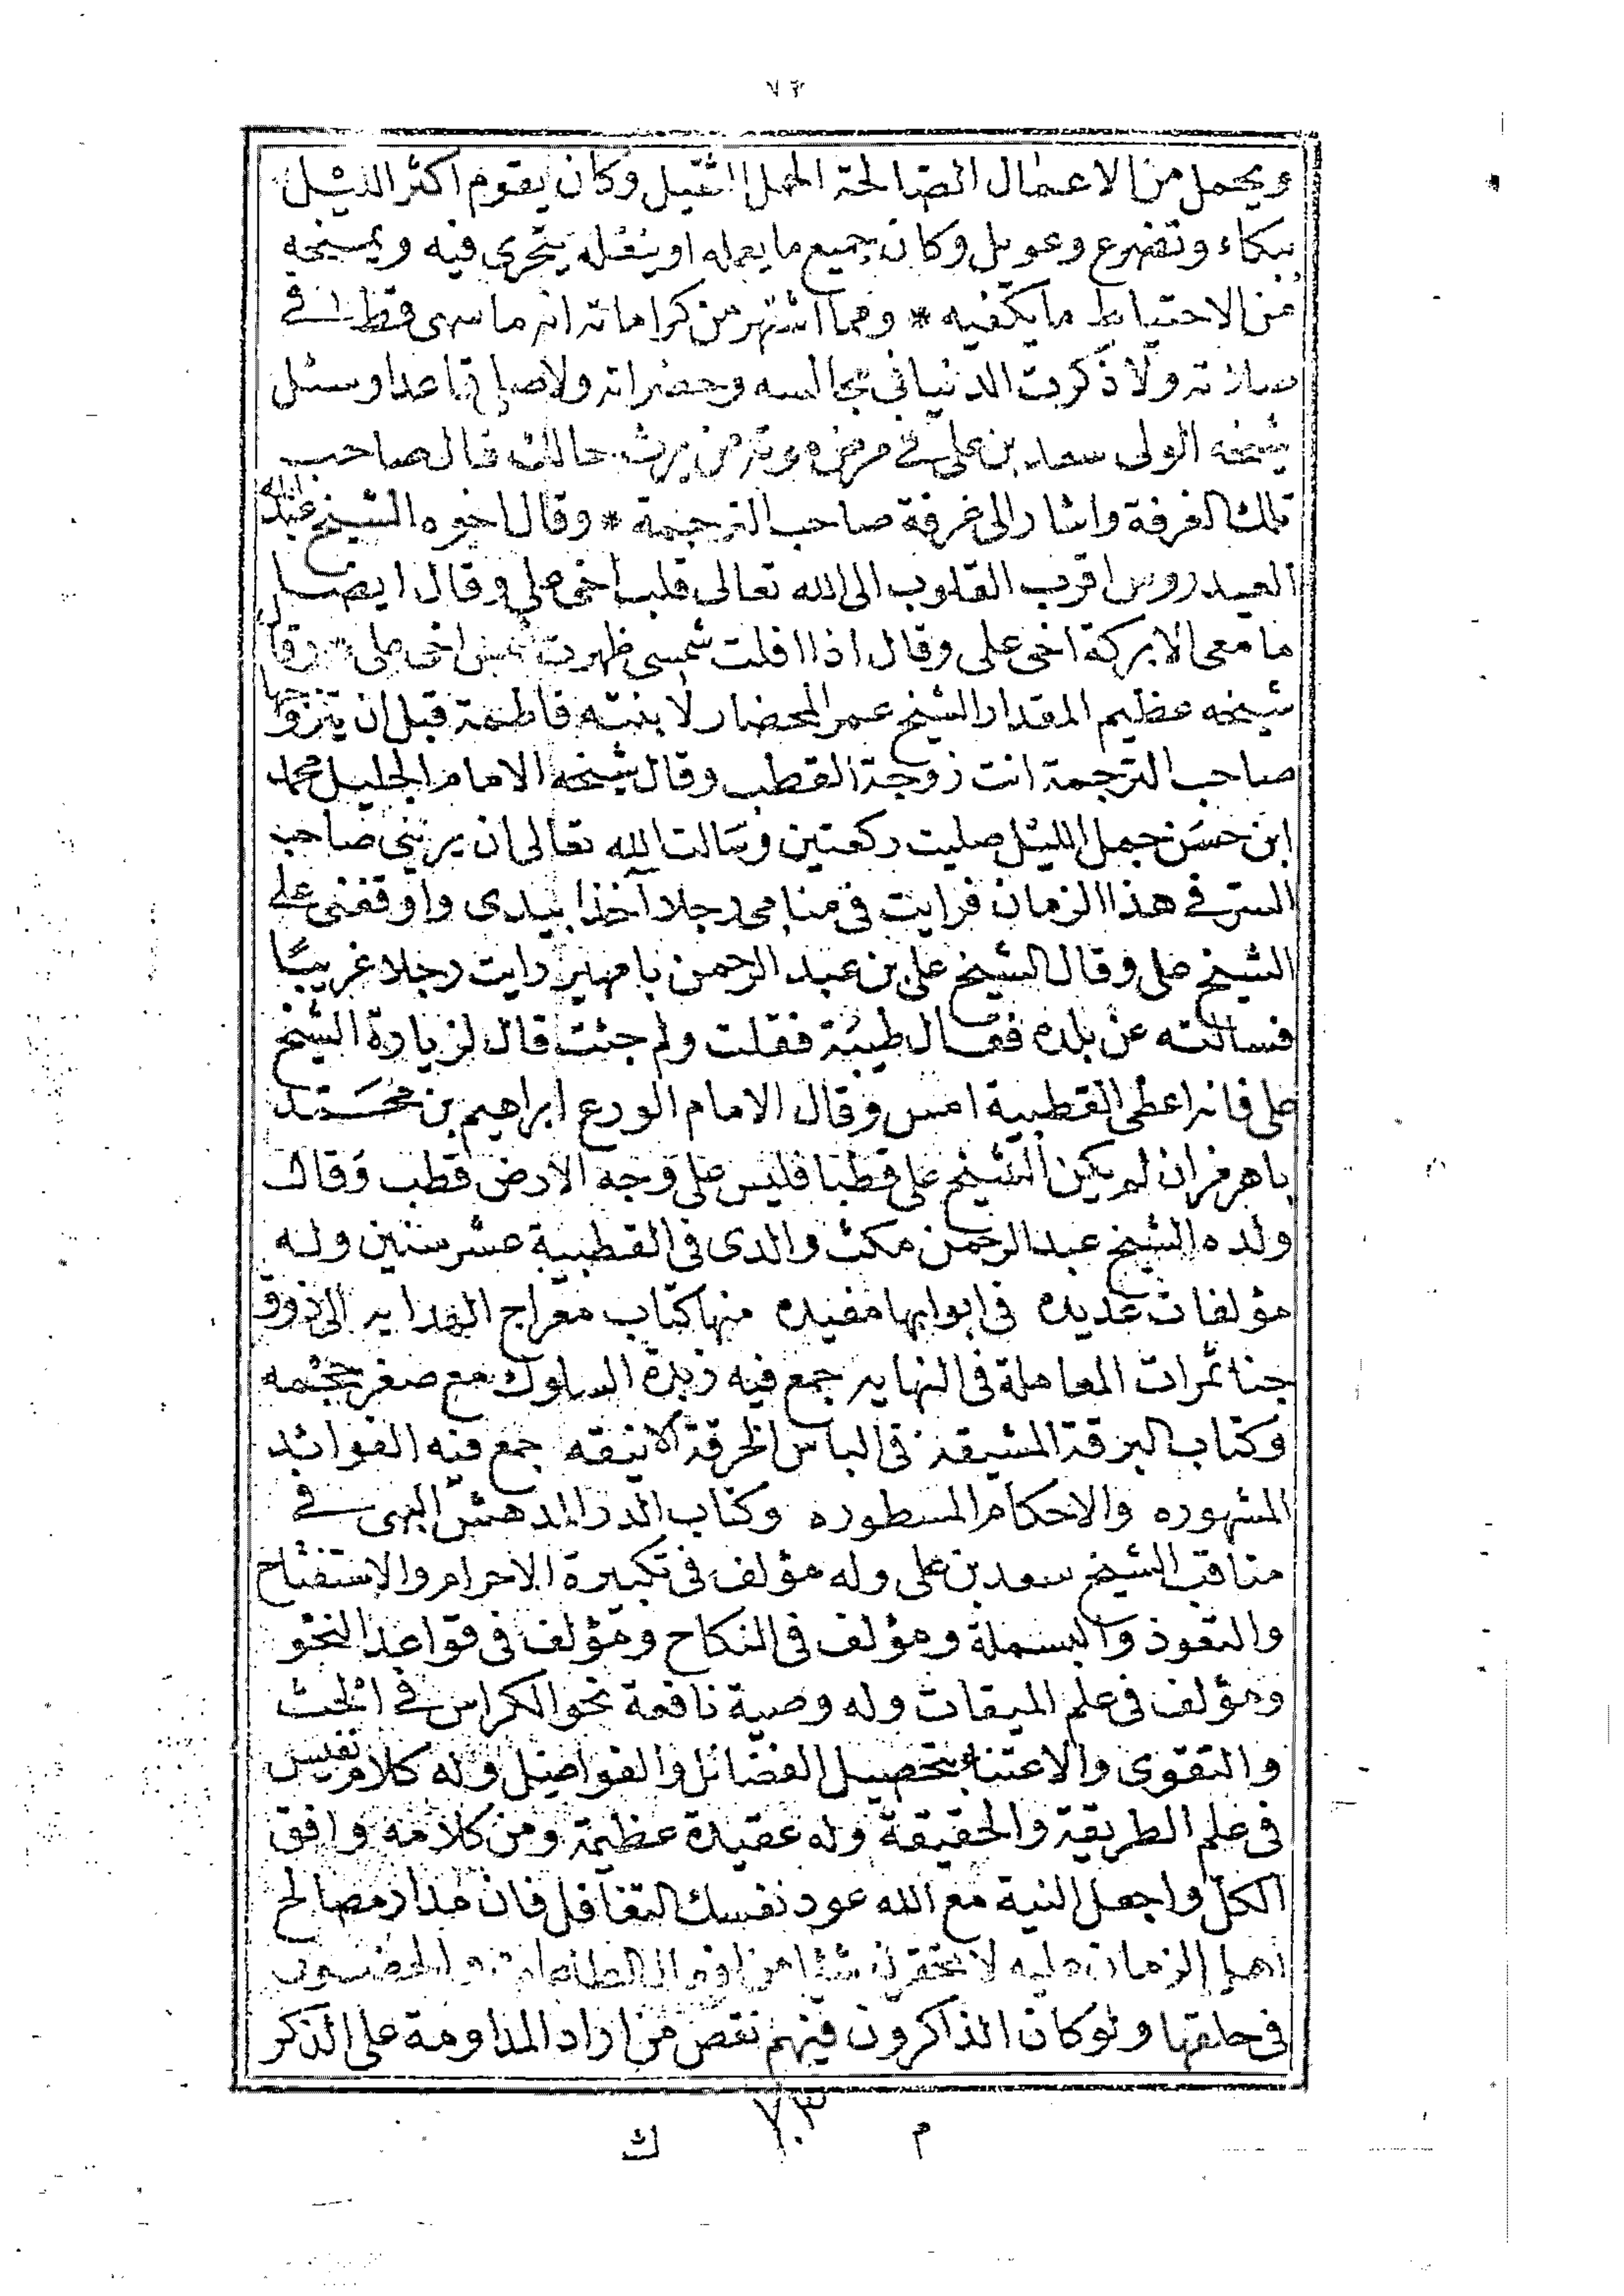 ٧٣
ويحمل من الاعمال الصالحة الحمل الثقيل وكان يقوم اكثر الليل
ببكاء وتضرع وعويل وكان جميع ما يعمله او ينقله يتحرى فيه ويمسخه
من الاحتياط ما يكفيه * ومما اشتهر من كراماته انه ما سهى قط في
صلاته ولا ذكرت الدنيا في مجالسه وحضراته ولا صلى قاعدا وسئل
شيخه الولى سعد بن على في مرض موته من يرث حالك قال صاحب
تلك الغرفة واشار الى غرفة صاحب الترجمة * وقال اخوه الشيخ عبد الله
العيدروس اقرب القلوب الى الله تعالى قلب اخى على وقال ايضا
ما معى الا بركة اخى على وقال اذا افلت شمسى ظهرت شمس اخى على * وقال
شيخه عظيم المقدار الشيخ عمر المحضار لابنته فاطمة قبل ان يتزوجها
صاحب الترجمة انت زوجة القطب وقال شيخه الامام الجليل محمد
ابن حسن جمل الليل صليت ركعتين وسالت الله تعالى ان يرينى صاحب
السر في هذا الزمان فرايت في منامى رجلا آخذا بيدى واوقفنى على
الشيخ على وقال الشيخ على بن عبد الرحمن بامهير رايت رجلا غريبًا
فسالته عن بلده فقال طيبة فقلت ولم جئت قال لزيارة الشيخ
على فانه اعطى القطبية امس وقال الامام الورع ابراهيم بن محمد
باهرمز ان لم يكن الشيخ على قطبا فليس على وجه الارض قطب وقال
ولده الشيخ عبد الرحمن مكث والدى في القطبية عشر سنين وله
مؤلفات عديده في ابوابها مفيده منها كتاب معراج الهدايه الى ذوق
جنا ثمرات المعاملة في النهايه جمع فيه زبدة السلوك مع صغر حجمه
وكتاب البرقة المشيقة في الباس الخرقة الانيقه جمع فيه الفوائد
المشهوره والاحكام المسطوره وكتاب الدر المدهش البهى في
مناقب الشيخ سعد بن على وله مؤلف في تكبيرة الاحرام والاستفتاح
والتعوذ والبسملة ومؤلف في النكاح ومؤلف في قواعد النحو
ومؤلف في علم الميقات وله وصية نافعة نحو الكراس في الحث
والتقوى والاعتناء بتحصيل الفضائل والفواضل وله كلام نفيس
في علم الطريقة والحقيقة وله عقيدة عظيمة ومن كلامه وافق
الكل واجعل النية مع الله عود نفسك التغافل فان مدار مصالح
اهل الزمان عليه لا تحقرن شئا من افعال الطاعات والحضور
في حلقها ولو كان الذاكرون فيهم نقص من اراد المداومة على الذكر
م ٧٣ ك